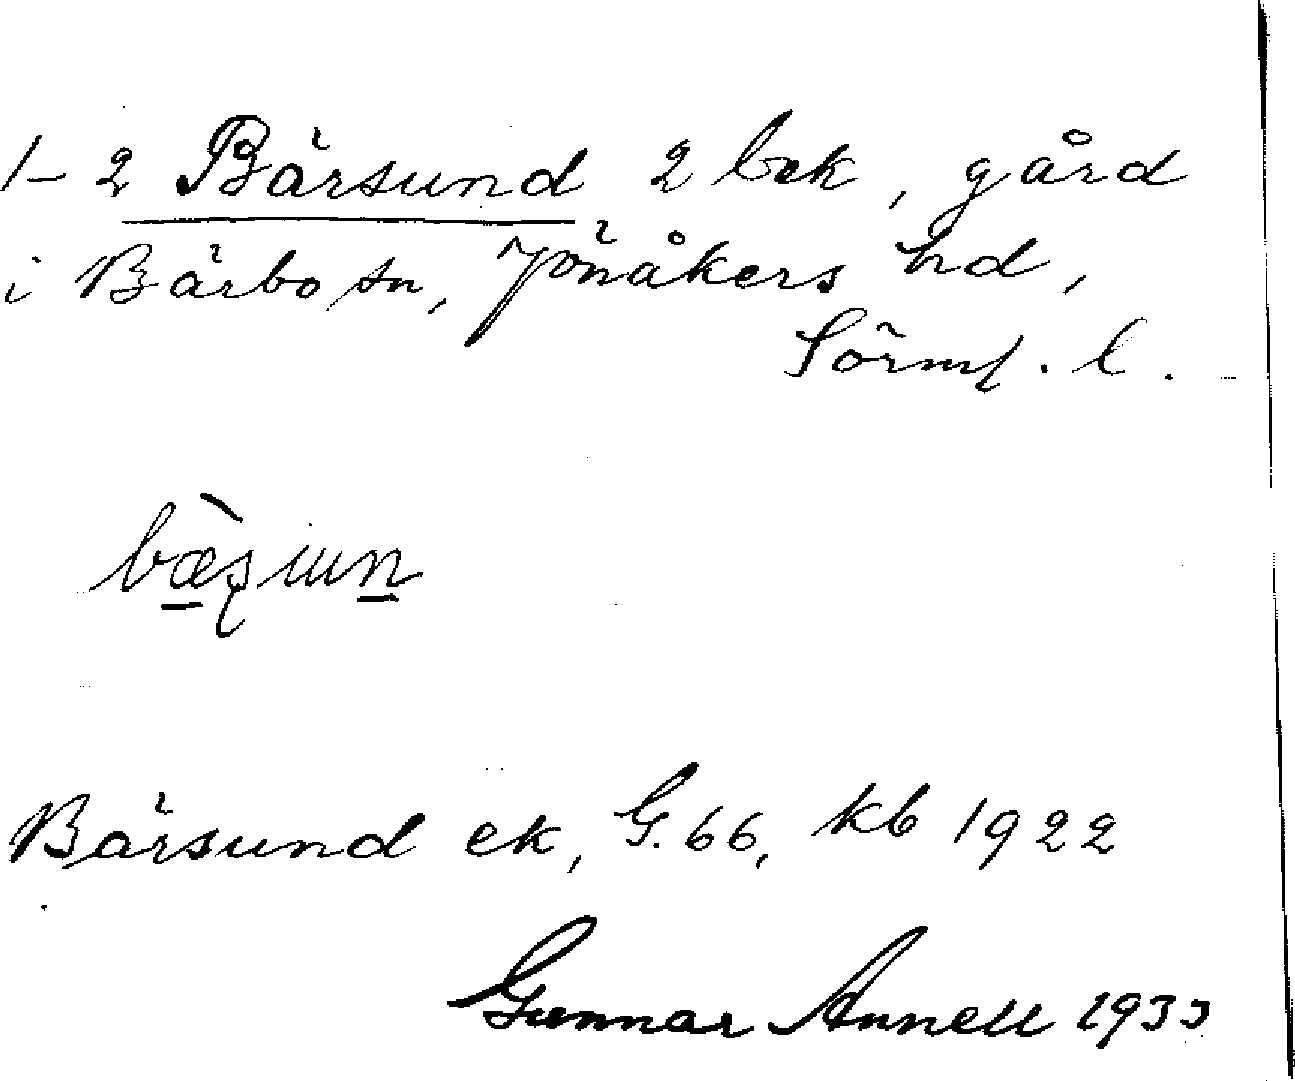 1-2 Bärsund 2 bek, gård
i Bärbo sn, Jönåkers hd,
Sörml. l.
bæ̀ʂɯn
Bärsund ek, G. 66, kb 1922
Gunnar Annell 1933